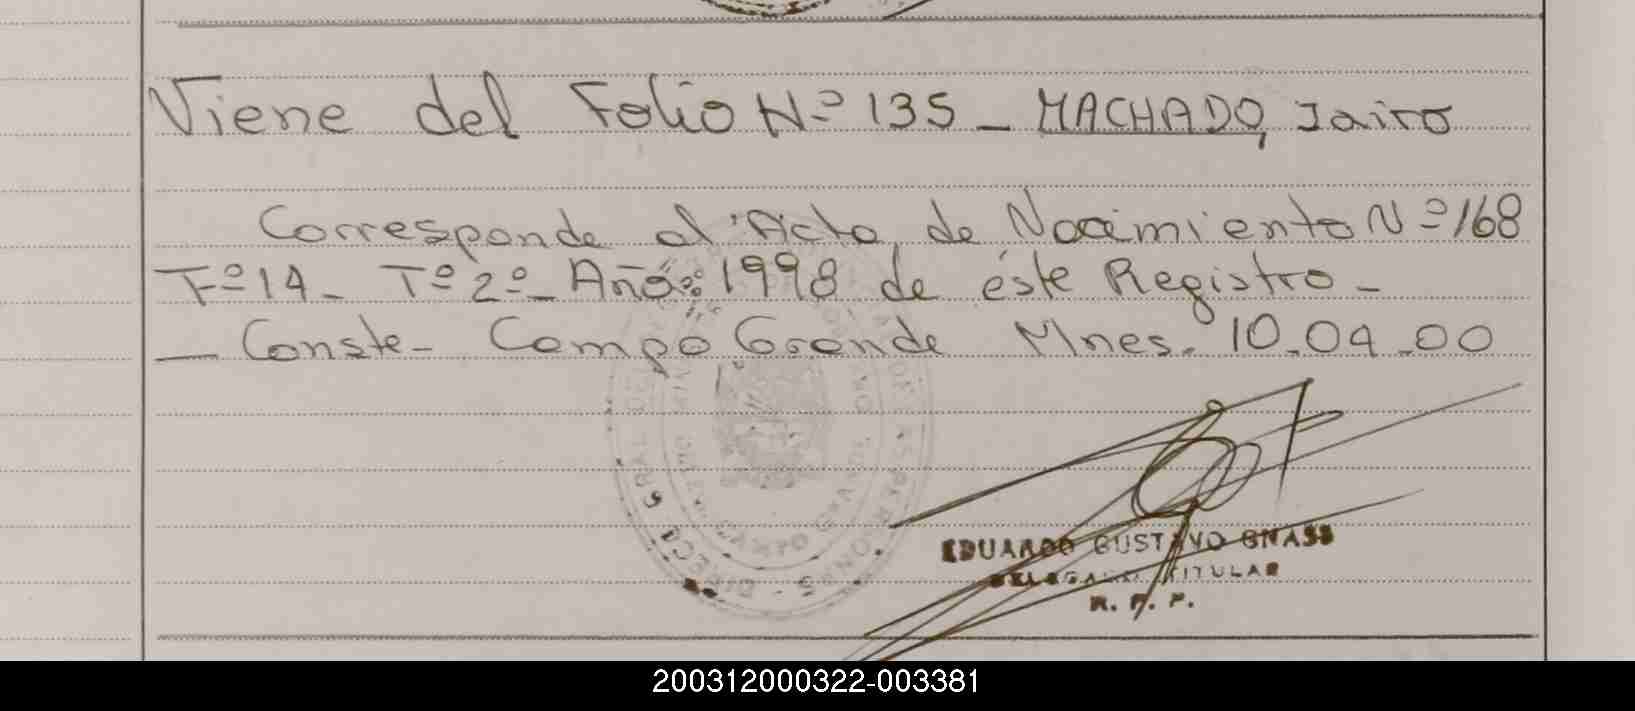 Viene del Folio Nº 135 - MACHADO, Jairo
Corresponde al Acta de Nacimiento Nº 168
Fº 14 - Tº 2º - Año: 1998 de éste Registro -
- Conste - Campo Grande Mnes. 10.04.00
EDUARDO GUSTAVO GNASS
DELEGADO TITULAR
R. P. P.
200312000322-003381